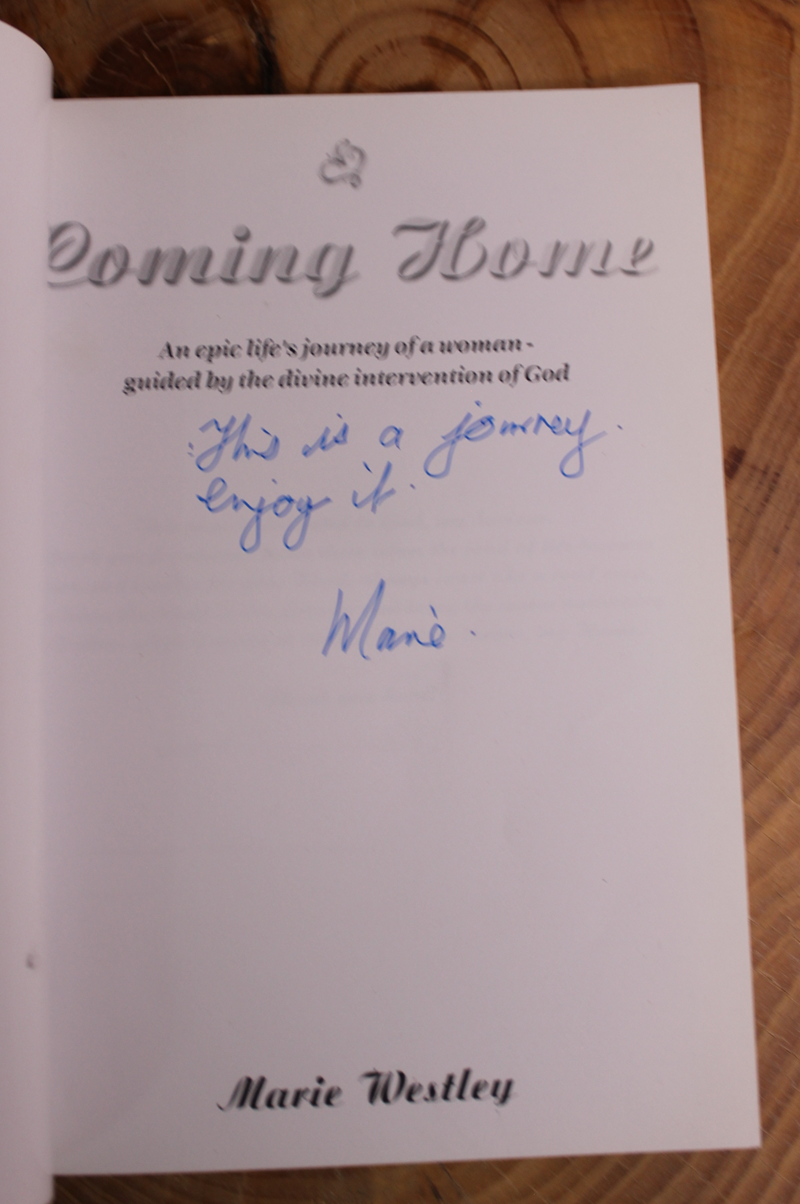 Coming Home
An epic life's journey of a woman -
guided by the divine intervention of God
This is a journey.
enjoy it.
Marie.
Marie Westley